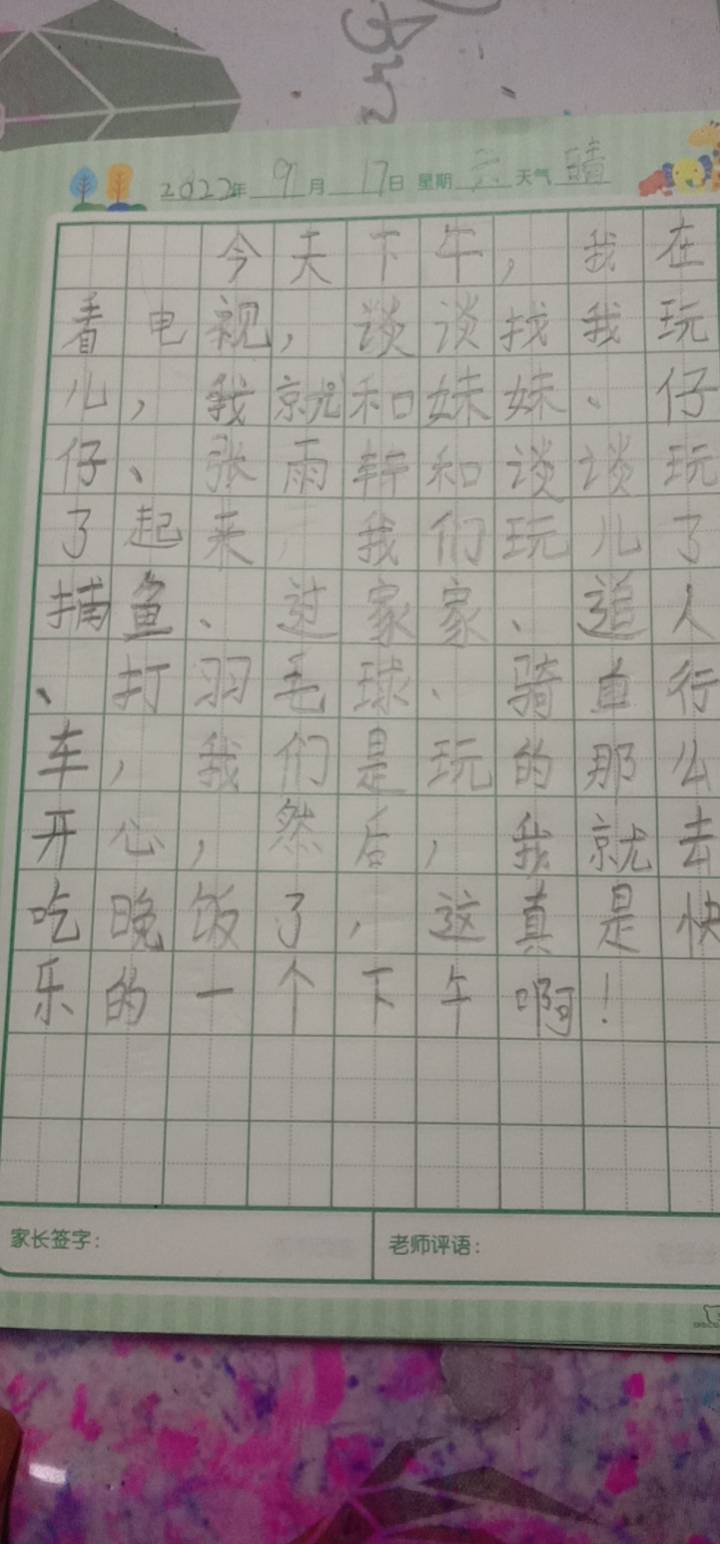 2022年 9月 17日 星期 六 天气 晴
今天下午，我在
看电视，谈谈找我玩
儿，我就和妹妹、仔
仔、张雨轩和谈谈玩
了起来，我们玩儿了
捕鱼、过家家、追人
、打羽毛球、骑自行
车，我们是玩的那么
开心，然后，我就去
吃晚饭了，这真是快
乐的一个下午啊！
家长签字：
老师评语：